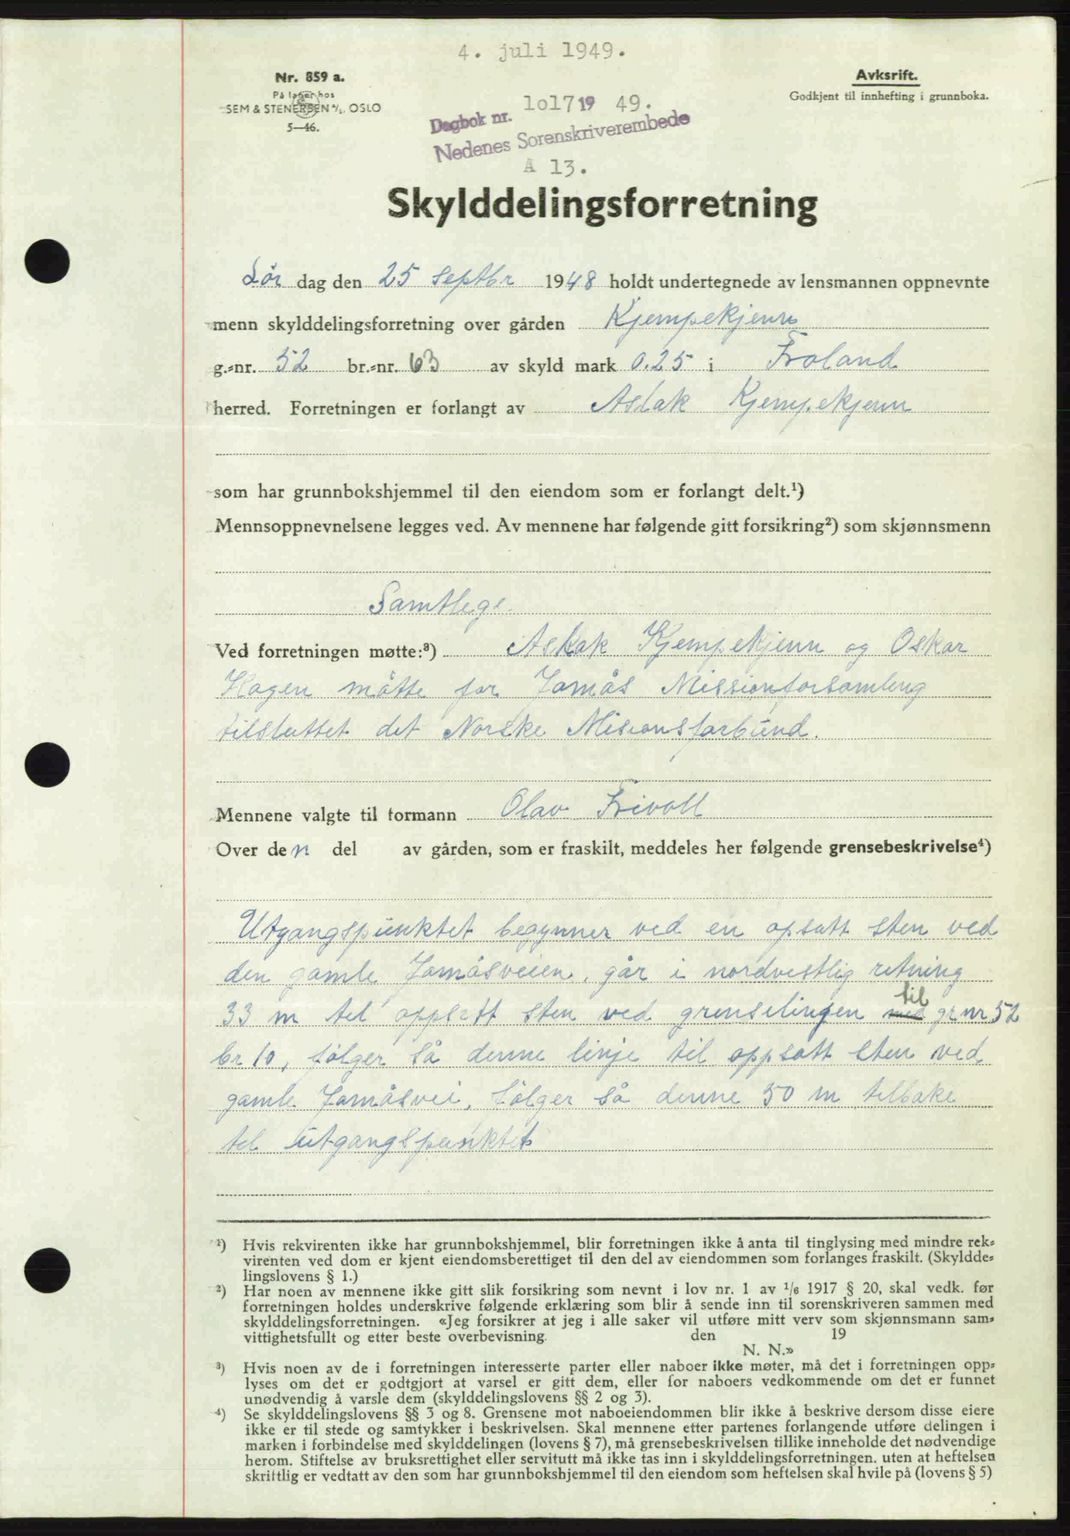 4. juli 1949.
Nr. 859 a.
På lager hos
SEM & STENERSEN A/S, OSLO
5—46.
Avksrift.
Godkjent til innhefting i grunnboka.
Dagbok nr. 1017 19 49.
Nedenes Sorenskriverembede
A 13.
Skylddelingsforretning
Lør dag den 25 septbr 1948 holdt undertegnede av lensmannen oppnevnte
menn skylddelingsforretning over gården Kjempekjenn
g.-nr. 52 br.-nr. 63 av skyld mark 0.25 i Froland
herred. Forretningen er forlangt av Aslak Kjempekjenn
som har grunnbokshjemmel til den eiendom som er forlangt delt.¹)
Mennsoppnevnelsene legges ved. Av mennene har følgende gitt forsikring²) som skjønnsmenn
Samtlege.
Ved forretningen møtte:³) Aslak Kjempekjenn og Oskar
Hagen måtte for Jomås Missionforsamling
tilsluttet det Norske Misionsforbund.
Mennene valgte til formann Olav Trivoll
Over den del av gården, som er fraskilt, meddeles her følgende grensebeskrivelse⁴)
Utgangspunktet begynner ved en opsatt sten ved
den gamle Jomåsveien, går i nordvestlig retning
33 m til oppsatt sten ved grenselinjen med til gr nr 52
br 10, følger så denne linje til oppsatt sten ved
gamle Jomåsvei, følger så denne 50 m tilbake
til utgangspunktet
¹) Hvis rekvirenten ikke har grunnbokshjemmel, blir forretningen ikke å anta til tinglysing med mindre rek-
virenten ved dom er kjent eiendomsberettiget til den del av eiendommen som forlanges fraskilt. (Skyldde-
lingslovens § 1.)
²) Har noen av mennene ikke gitt slik forsikring som nevnt i lov nr. 1 av 1/6 1917 § 20, skal vedk. før
forretningen holdes underskrive følgende erklæring som blir å sende inn til sorenskriveren sammen med
skylddelingsforretningen. «Jeg forsikrer at jeg i alle saker vil utføre mitt verv som skjønnsmann sam-
vittighetsfullt og etter beste overbevisning. den 19
N. N.»
³) Hvis noen av de i forretningen interesserte parter eller naboer ikke møter, må det i forretningen opp-
lyses om det er godtgjort at varsel er gitt dem, eller for naboers vedkommende om det er funnet
unødvendig å varsle dem (skylddelingslovens §§ 2 og 3).
⁴) Se skylddelingslovens §§ 3 og 8. Grensene mot naboeiendommen blir ikke å beskrive dersom disse eiere
ikke er til stede og samtykker i beskrivelsen. Skal mennene etter partenes forlangende utføre delingen i
marken i forbindelse med skylddelingen (lovens § 7), må grensebeskrivelsen tillike inneholde det nødvendige
herom. Stiftelse av bruksrettighet eller servitutt må ikke tas inn i skylddelingsforretningen, uten at heftelsen
skriftlig er vedtatt av den som har grunnbokshjemmel til den eiendom som heftelsen skal hvile på (lovens § 5)